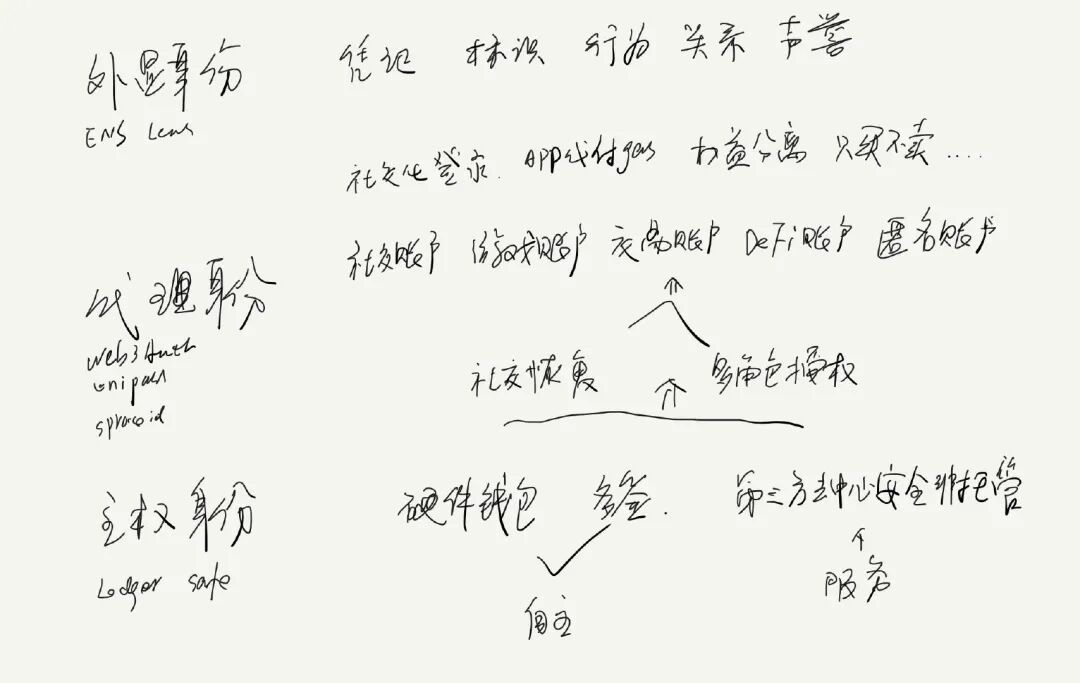 外显身份 凭记 标识 行为 关系 声誉
ENS Lens
社交化登录. APP代付gas 权益分离 只买不卖....
社交账户 游戏账户 交易账户 DeFi账户 匿名账户
代理身份
Web3Auth
Unipass
社交恢复 多角色授权
主权身份 硬件钱包 多签. 第三方去中心安全非托管
Ledger safe
服务
自主